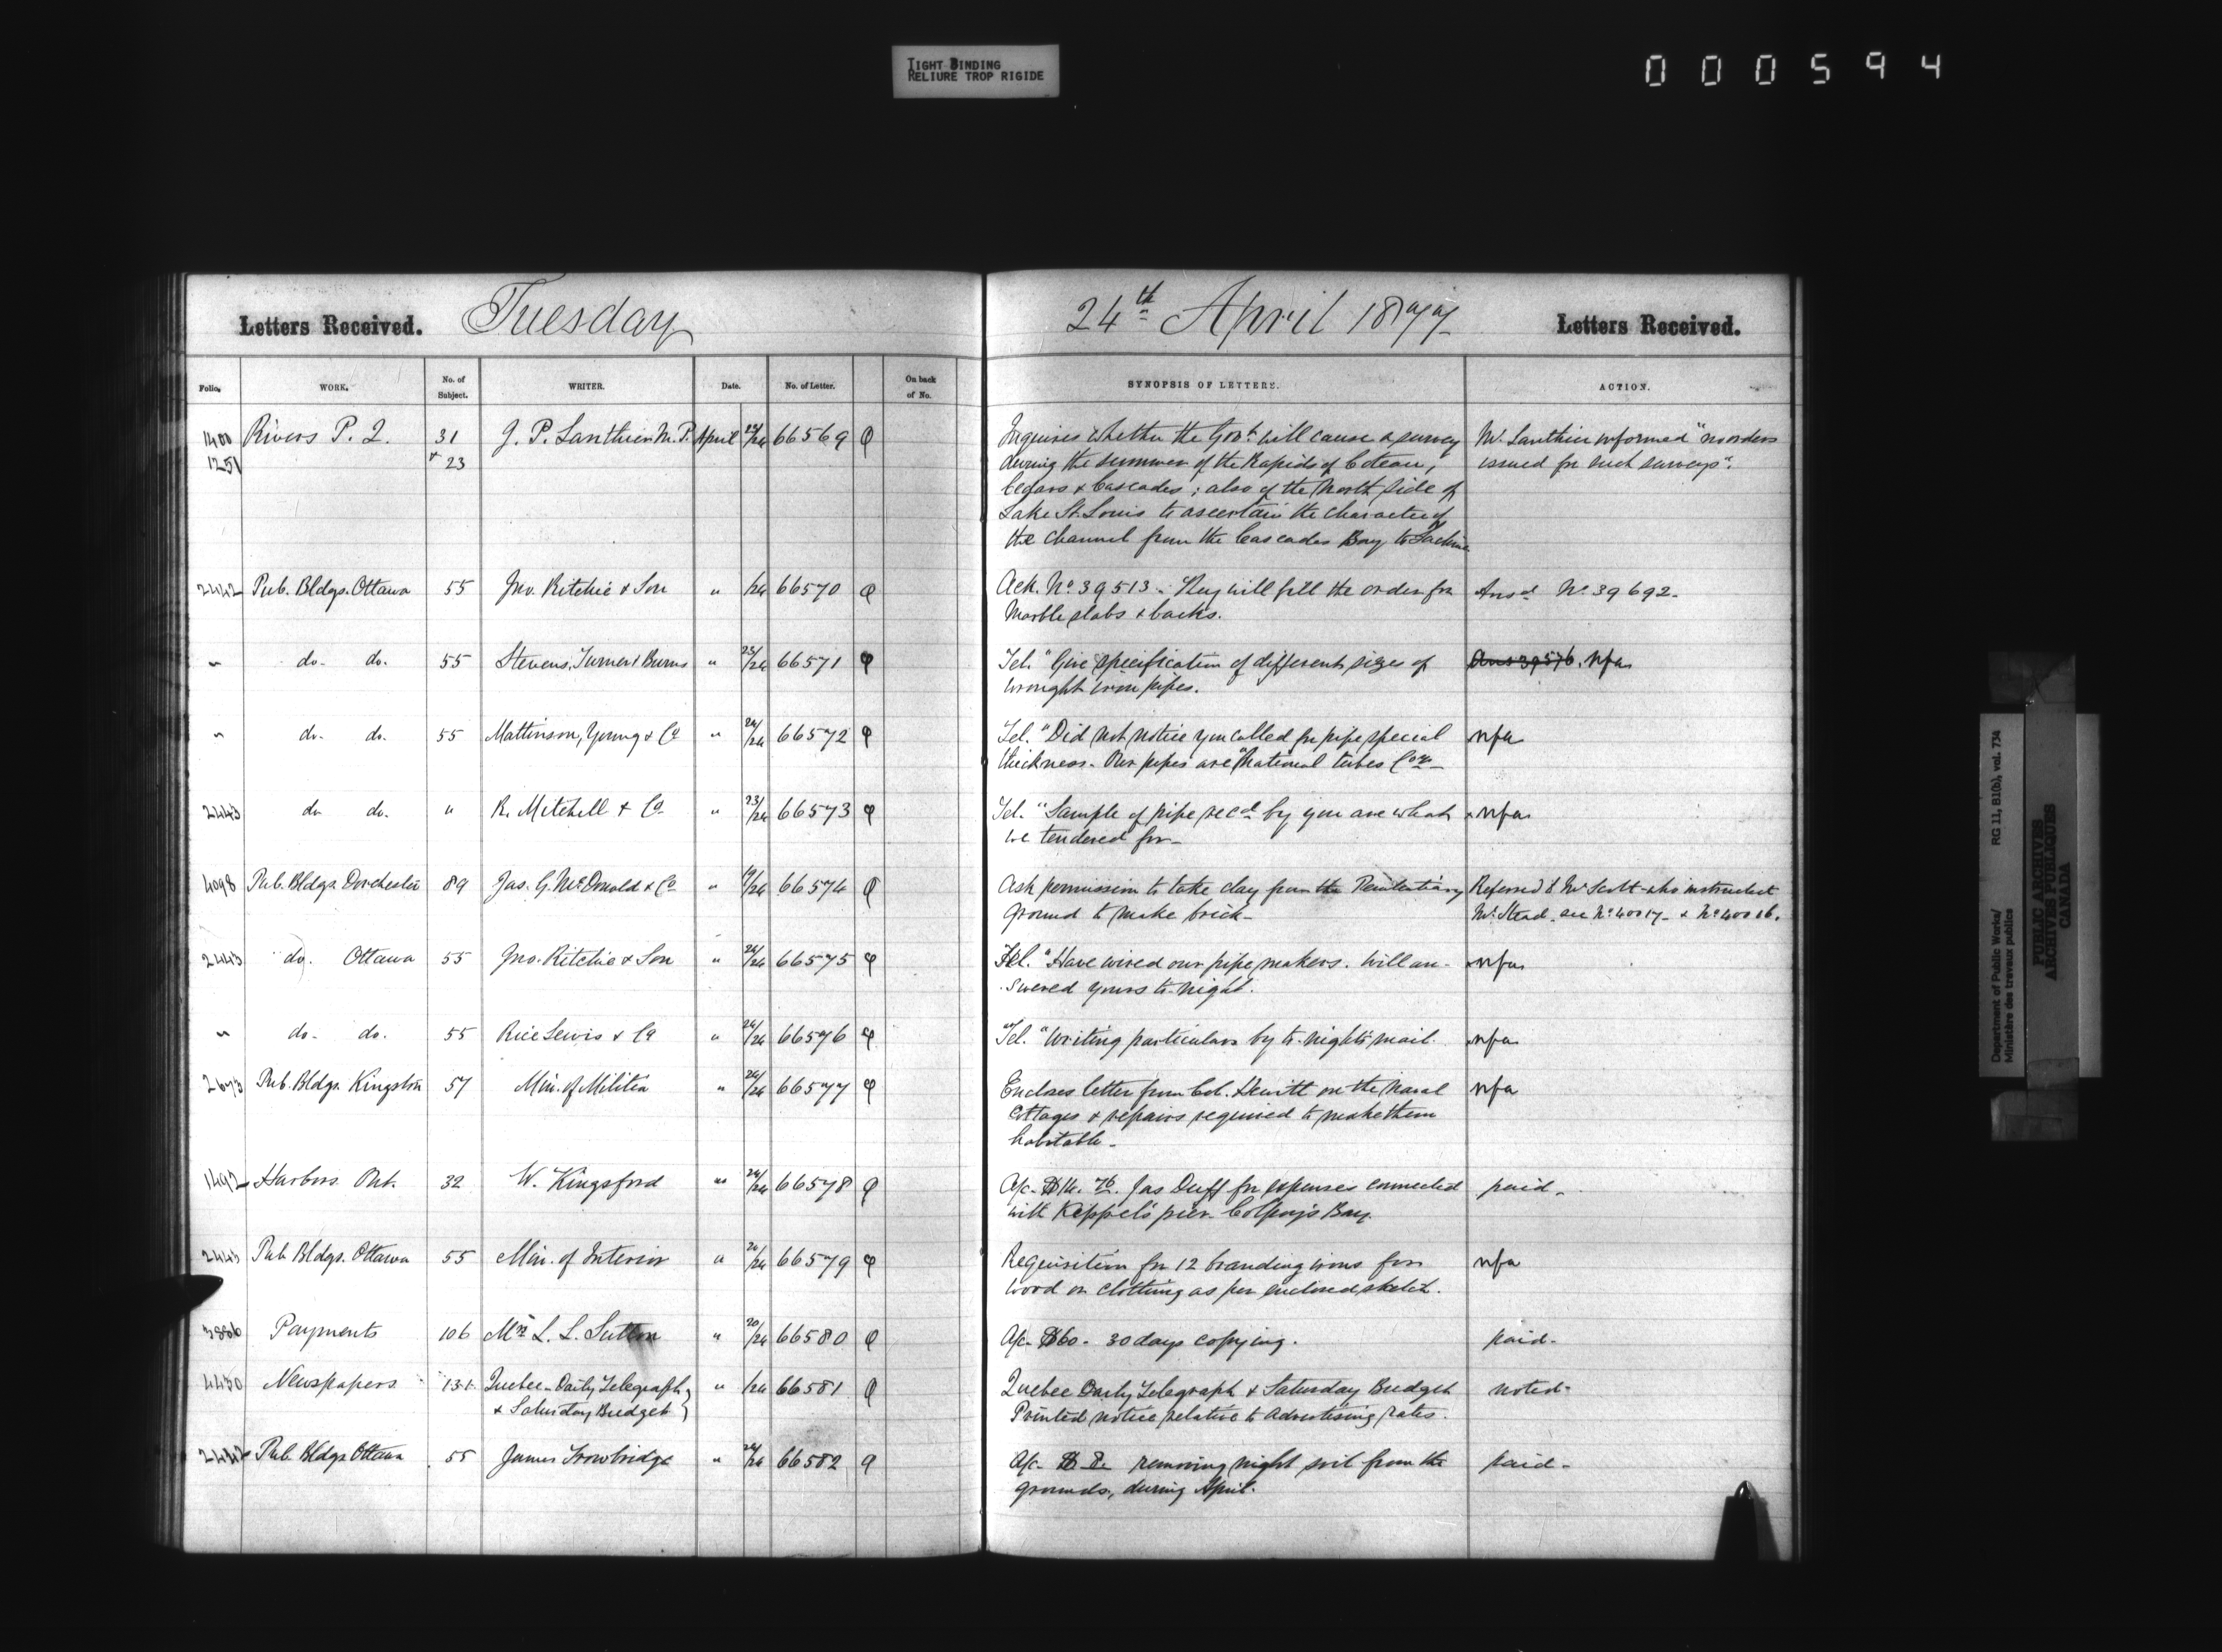 TIGHT BINDING
RELIURE TROP RIGIDE
000594
Letters Received. Tuesday 24th April 1877 Letters Received.
Folio. WORK. No. of Subject. WRITER. Date. No. of Letter. On back of No. SYNOPSIS OF LETTERS. ACTION.
1400 Rivers P. Q. 31 J. P. Lanthier M.P. April 23/24 66569 Inquires whether the Govt. will cause a survey Mr. Lanthier informed "no orders
1251 + 23 during the summer of the Rapids of Coteau, issued for such surveys".
Cedars & Cascades; also of the North side of
Lake St. Louis to ascertain the character of
the channel from the Cascades Bay to Lachine
2442 Pub. Bldgs. Ottawa 55 Jno. Ritchie & Son " /24 66570 Ack. No. 39513. They will fill the order for Ansd No. 39692.
Marble slabs & backs.
" do. do. 55 Stevens, Turner & Burns " 23/24 66571 Tel. "Give specification of different sizes of Ans 39576. nfa
wrought iron pipes.
" do. do. 55 Mattinson, Young & Co " 24/24 66572 Tel. "Did not notice you called for pipe special nfa
thickness. Our pipes are "National tubes Coy.
2443 do do. " R. Mitchell & Co. " 23/24 66573 Tel. "Sample of pipe recd by you are what nfa
we tendered for
4098 Pub. Bldgs. Dorchester 89 Jas. G. McDonald & Co " 19/24 66574 Ask permission to take clay from the Penitentiary Referred to Mr Scott who instructed
ground to make brick Mr. Stead. see No. 40017 & No. 40016.
2443 do. Ottawa 55 Jno. Ritchie & Son " 24/24 66575 Tel. "Have wired our pipe makers. Will an- nfa
swered yours to-night.
" do. do. 55 Rice Lewis & Co " 24/24 66576 Tel. "Writing particulars by to-night's mail. nfa
2673 Pub. Bldgs. Kingston 57 Min. of Militia " 24/24 66577 Encloses letter from Col. Hewitt on the Naval nfa
Cottages & repairs required to make them
habitable
1492 Harbors Ont. 32 W. Kingsford " 24/24 66578 A/c. $14.76. Jas Duff for expenses connected paid
with Keppel's pier. Colpoy's Bay.
2443 Pub Bldgs. Ottawa 55 Min. of Interior " 24/24 66579 Requisition for 12 branding irons for nfa
wood or clothing as per enclosed sketch.
3886 Payments 106 Mrs L. L. Sutton " 20/24 66580 A/c $60. 30 days copying. paid
4430 Newspapers 131 Quebec Daily Telegraph " /24 66581 Quebec Daily Telegraph & Saturday Budget noted
& Saturday Budget Printed notice relative to advertising rates.
2442 Pub. Bldgs Ottawa 55 James Trowbridge " 24/24 66582 A/c $8. removing night soil from the paid
grounds, during April.
Department of Public Works/
Ministère des travaux publics
RG 11, B1(b), vol. 734
PUBLIC ARCHIVES
ARCHIVES PUBLIQUES
CANADA